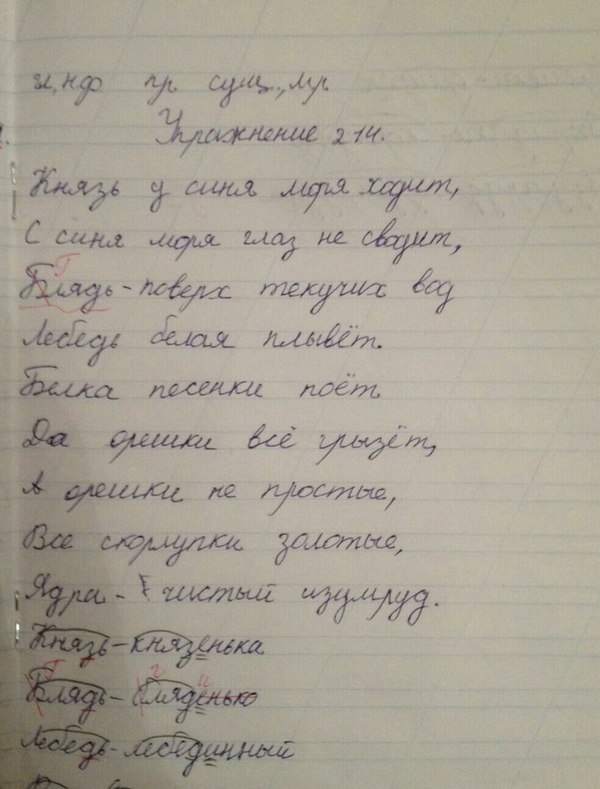 гл, нф пр. сущ., м.р.
Упражнение 214.
Князь у синя моря ходит,
С синя моря глаз не сводит,
Г
Блядь - поверх текучих вод
Лебедь белая плывёт.
Белка песенки поёт
Да орешки всё грызёт,
А орешки не простые,
Все скорлупки золотые,
Ядра - чистый изумруд.
Князь - князенька
Г г и
Блядь - бляденько
Лебедь - лебединный